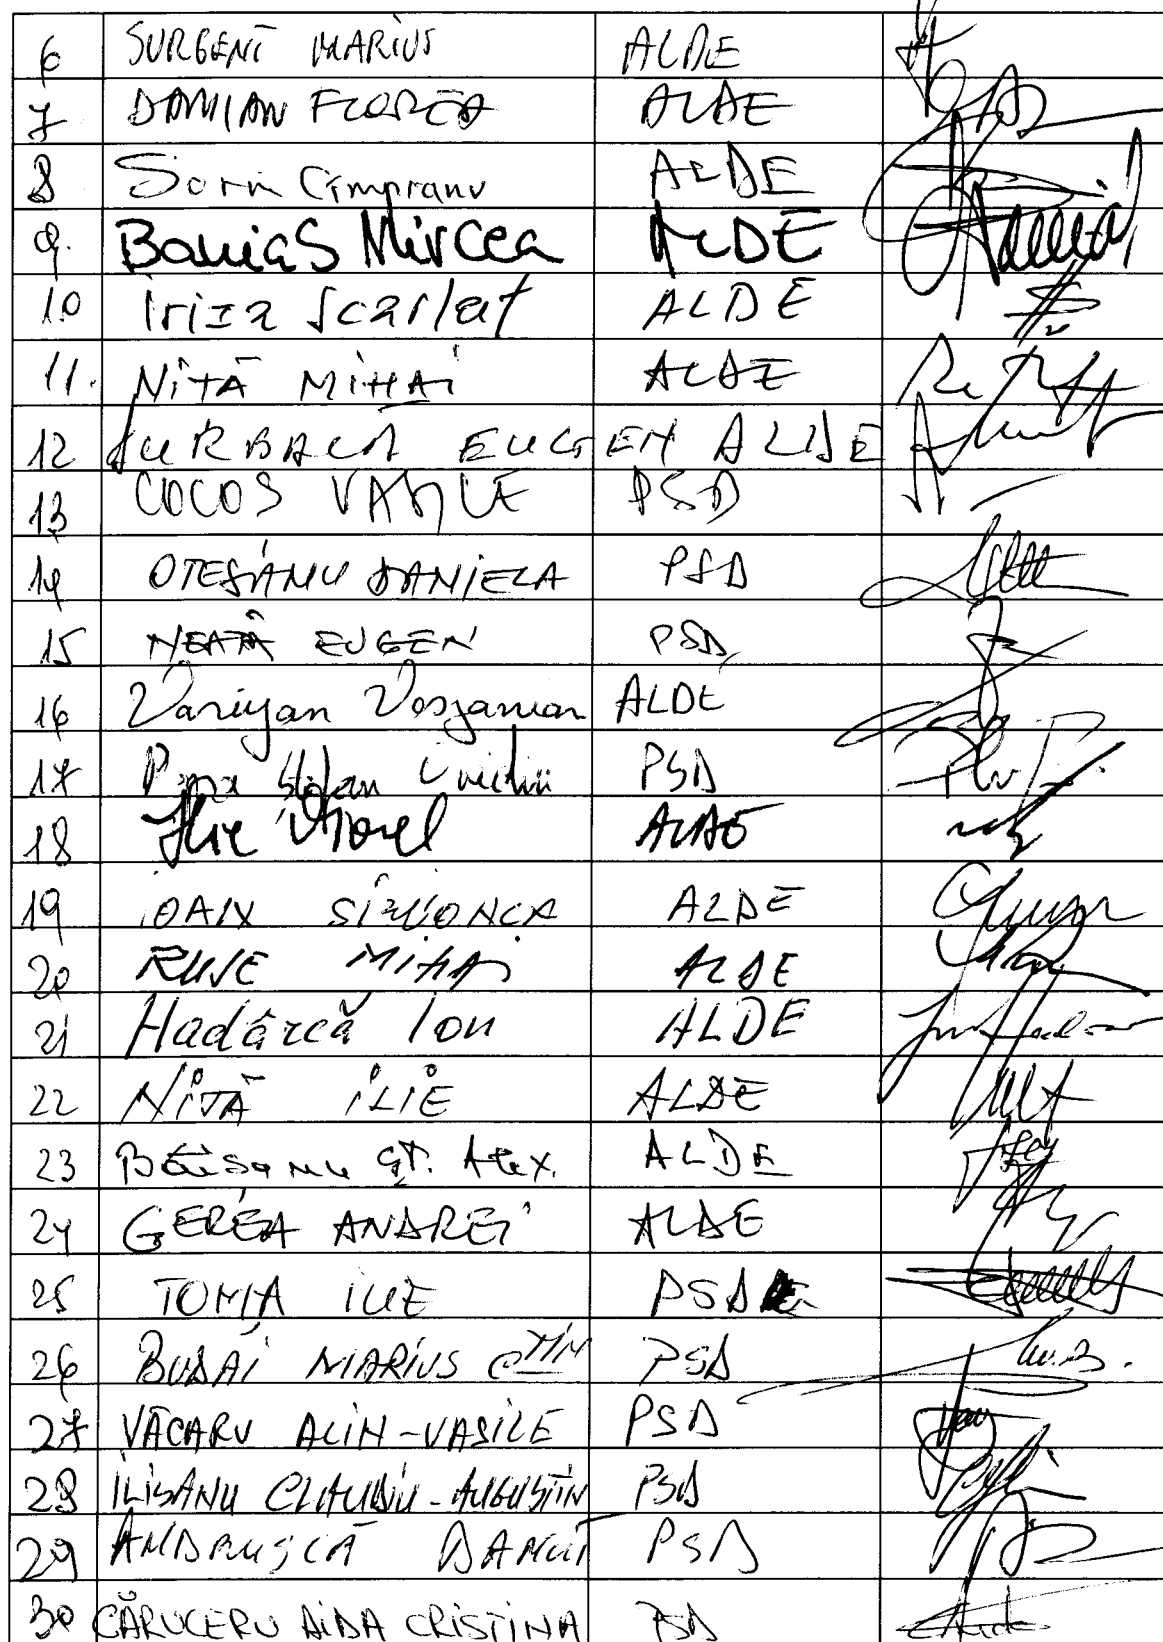 6 SURGENT MARIUS ALDE
7 DAMIAN FLOREA ALDE
8 Sorin Cîmpeanu ALDE
9. Banias Mircea ALDE
10 Iriza Scarlat ALDE
11. NIȚĂ MIHAI ALDE
12 DURBACĂ EUGEN ALDE
13 COCOS VASILE PSD
14 OTESANU DANIELA PSD
15 NEATĂ EUGEN PSD
16 Varujan Vosganian ALDE
17 Popa Stefan Ovidiu PSD
18 Ilie Viorel ALDE
19 IOAN SIMIONCA ALDE
20 RUSE MIHAI ALDE
21 Hadârcă Ion ALDE
22 NIȚĂ ILIE ALDE
23 Băisanu ȘT. Alex. ALDE
24 GEREA ANDREI ALDE
25 TOMA ILIE PSD
26 BUDĂI MARIUS C-TIN PSD
27 VĂCARU ALIN-VASILE PSD
28 ILISANU CLAUDIU-AUGUSTIN PSD
29 ANDRUSCĂ DANUT PSD
30 CĂRUCERU AIDA CRISTINA PSD